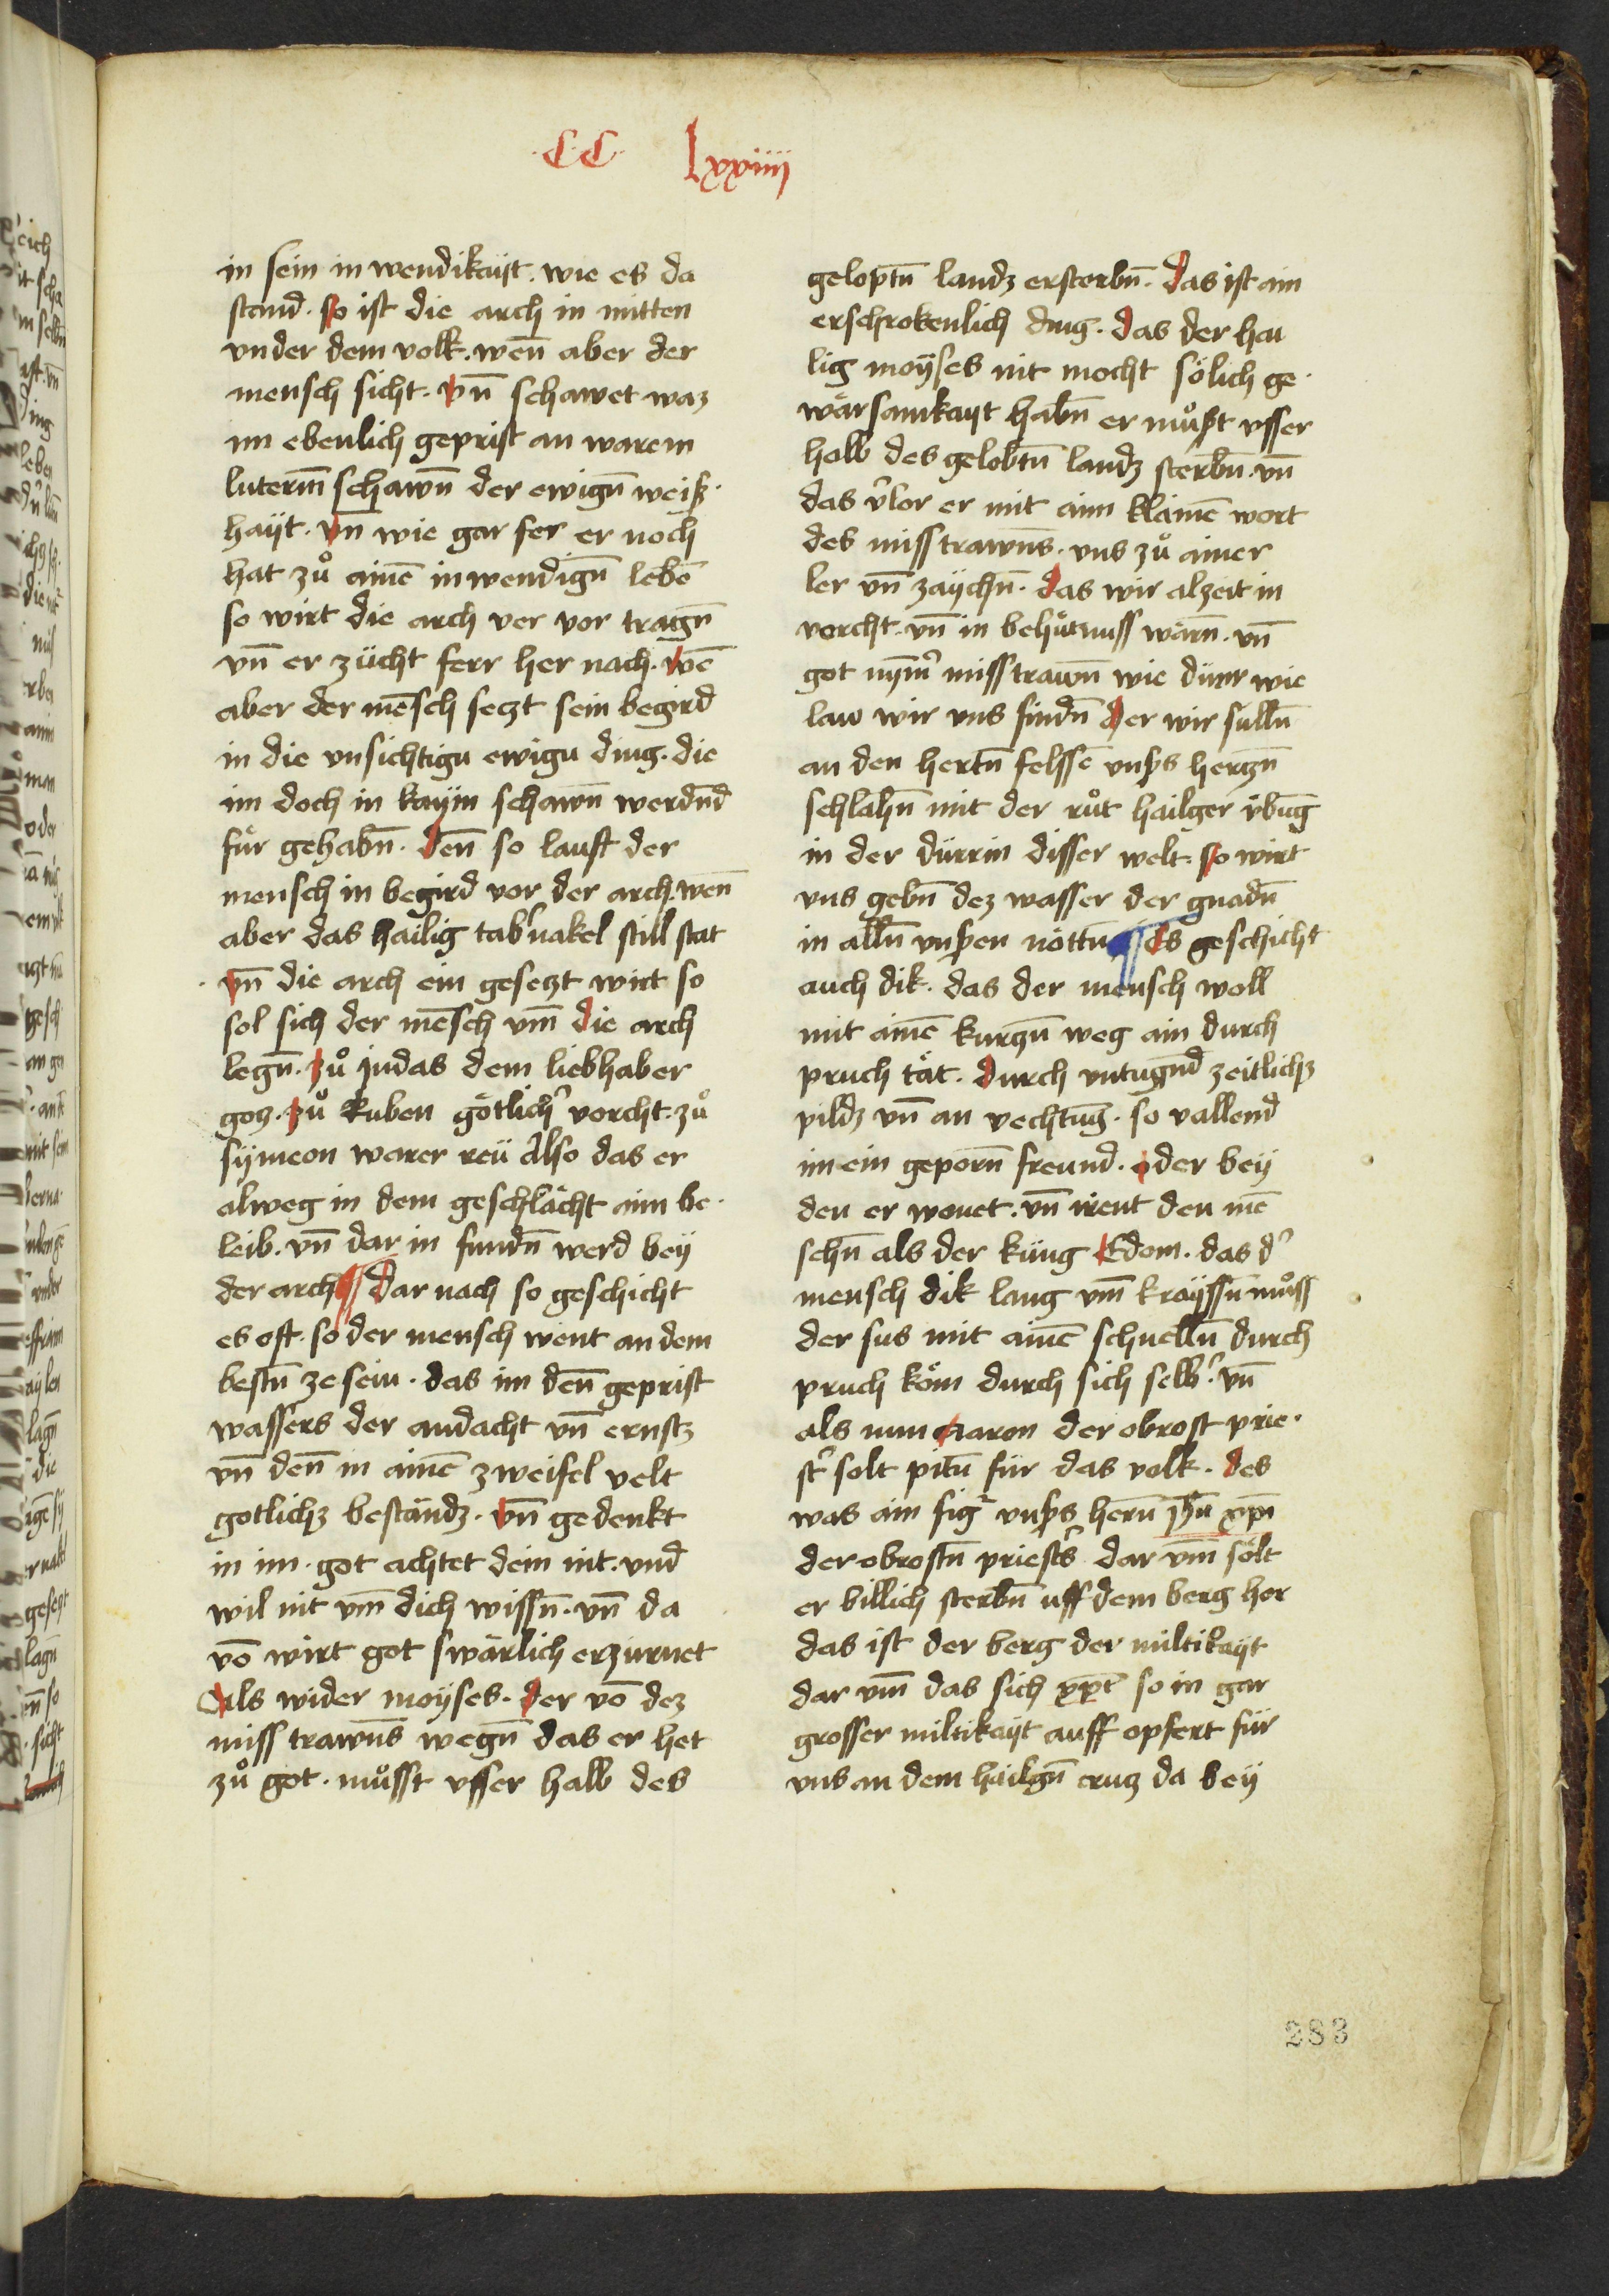 ·CC· Lxxiiij
in sein in wendikäyt. wie es da
stand. so ist die arch in mitten
vnder dem volk. wen̄ aber der
mensch sicht. vn̄ schawet waz
im ebenlich geprist an warem
luterm̄ schawn̄ der ewign̄ weiß·
häyt. vn̄ wie gar fer er noch
hat zů ainē inwendign̄ lebē
so wirt die arch ver vor tragn̄
vn̄ er zücht ferr her nach. wē
aber der mēsch seczt sein begird
in die vnsichtigu ewigu ding. die
im doch in kaym schawn̄ werdn̄d
für gehabn̄. den̄ so lauft der
mensch in begird vor der arch. wen̄
aber das hailig tab'nakel still stat
vn̄ die arch ein gesetzt wirt so
sol sich der mēsch vm̄ die arch
legn̄. zů judas dem liebhaber
gotz. zů Ruben götlich' vorcht. zů
symeon warer reü Also das er
alweg in dem geschlächt ain be·
leib. vn̄ dar in fundn̄ werd bey
der arch ¶ Dar nach so geschicht
es oft. so der mensch went an dem
bestn̄ ze sein. das im den̄ geprist
wassers der andacht vn̄ ernstz
vn̄ den̄ in ainē zweifel velt
gotlichz beständz. vn̄ gedenkt
in im. got achtet dein nit. vnd
wil nit vm̄ dich wissn̄. vn̄ da
vō wirt got swärlich erzürnet
Als wider moyses. der vō dez
miss trawn̄s wegn̄ das er het
zů got. můsst vsser halb des
geloptn̄ landz ersterbn̄. das ist ain
erschrokenlich ding. das der hai
lig moyses nit mocht sölich ge·
wärsamkayt habn̄ er můßt vsser
halb des gelobtn̄ landz sterbn̄. vn̄
das v'lor er mit aim klainē wort
des misstrawn̄s. vns zů ainer
ler vn̄ zaychn̄. das wir alzeit in
vorcht. vn̄ in behütnuss wärn̄. vn̄
got nym̄' misstrawn̄ wie dürr wie
law wir vns findn̄ der wir sulln̄
an den hertn̄ felssē vnsers hertzn̄
schlahn̄ mit der růt hailger v̈bun̄g
in der dürrin disser welt. so wirt
vns gebn̄ dez wasser der gnadn̄
in alln̄ vnsren nöttn̄ ¶ Es geschicht
auch dik. das der mensch woll
mit ainē kurtzn̄ weg ain durch
pruch tät. durch vntugn̄d zeitlichz
pildz vn̄ an vechtun̄g. so vallend
im ein geporn̄ freund. oder bey
den er wonet. vn̄ irent den mē
schn̄ als der küng Edom. das d'
mensch dik lang vm̄ kräyssn̄ můss
der sus mit ainē schnelln̄ durch
pruch köm durch sich selb'. vn̄
als nun aaron der obrost prie·
st' solt pitn̄ für das volk. des
was ain fig' vnsers hern̄ ihū xp̄i
der obrostn̄ priest's dar vm̄ sölt
er billich sterbn̄ uff dem berg hor
das ist der berg der miltikayt
dar vm̄ das sich xp̄c so in gar
grosser miltikayt auff opfert für
vns an dem hailgn̄ crutz da bey
283